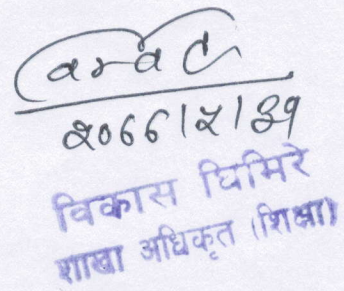 २०७७।५।३१
विकास घिमिरे
शाखा अधिकृत (शिक्षा)